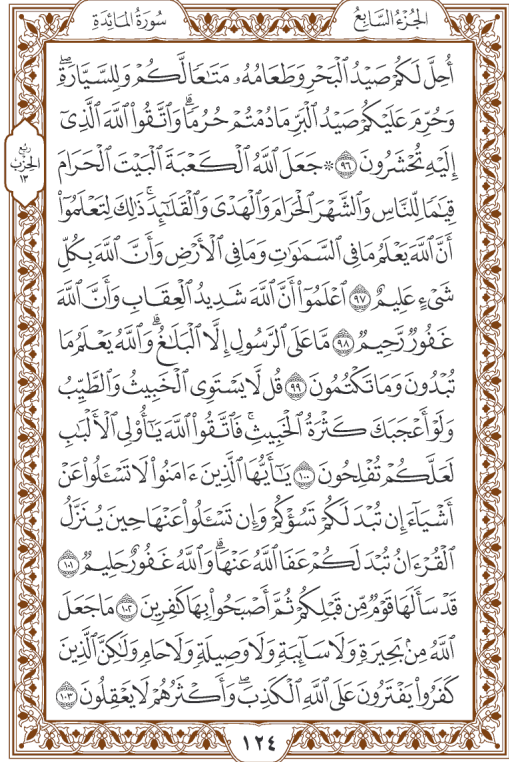 الجُزْءُ السَّابِعُ
سُورَةُ المَائِدَةِ
أُحِلَّ لَكُمْ صَيْدُ ٱلْبَحْرِ وَطَعَامُهُۥ مَتَٰعًا لَّكُمْ وَلِلسَّيَّارَةِۖ
وَحُرِّمَ عَلَيْكُمْ صَيْدُ ٱلْبَرِّ مَا دُمْتُمْ حُرُمًاۗ وَٱتَّقُوا۟ ٱللَّهَ ٱلَّذِىٓ
إِلَيْهِ تُحْشَرُونَ ٩٦ ۞ جَعَلَ ٱللَّهُ ٱلْكَعْبَةَ ٱلْبَيْتَ ٱلْحَرَامَ
قِيَٰمًا لِّلنَّاسِ وَٱلشَّهْرَ ٱلْحَرَامَ وَٱلْهَدْىَ وَٱلْقَلَٰٓئِدَۚ ذَٰلِكَ لِتَعْلَمُوٓا۟
أَنَّ ٱللَّهَ يَعْلَمُ مَا فِى ٱلسَّمَٰوَٰتِ وَمَا فِى ٱلْأَرْضِ وَأَنَّ ٱللَّهَ بِكُلِّ
شَىْءٍ عَلِيمٌ ٩٧ ٱعْلَمُوٓا۟ أَنَّ ٱللَّهَ شَدِيدُ ٱلْعِقَابِ وَأَنَّ ٱللَّهَ
غَفُورٌ رَّحِيمٌ ٩٨ مَّا عَلَى ٱلرَّسُولِ إِلَّا ٱلْبَلَٰغُۗ وَٱللَّهُ يَعْلَمُ مَا
تُبْدُونَ وَمَا تَكْتُمُونَ ٩٩ قُل لَّا يَسْتَوِى ٱلْخَبِيثُ وَٱلطَّيِّبُ
وَلَوْ أَعْجَبَكَ كَثْرَةُ ٱلْخَبِيثِۚ فَٱتَّقُوا۟ ٱللَّهَ يَٰٓأُو۟لِى ٱلْأَلْبَٰبِ
لَعَلَّكُمْ تُفْلِحُونَ ١٠٠ يَٰٓأَيُّهَا ٱلَّذِينَ ءَامَنُوا۟ لَا تَسْـَٔلُوا۟ عَنْ
أَشْيَآءَ إِن تُبْدَ لَكُمْ تَسُؤْكُمْ وَإِن تَسْـَٔلُوا۟ عَنْهَا حِينَ يُنَزَّلُ
ٱلْقُرْءَانُ تُبْدَ لَكُمْ عَفَا ٱللَّهُ عَنْهَاۗ وَٱللَّهُ غَفُورٌ حَلِيمٌ ١٠١
قَدْ سَأَلَهَا قَوْمٌ مِّن قَبْلِكُمْ ثُمَّ أَصْبَحُوا۟ بِهَا كَٰفِرِينَ ١٠٢ مَا جَعَلَ
ٱللَّهُ مِنۢ بَحِيرَةٍ وَلَا سَآئِبَةٍ وَلَا وَصِيلَةٍ وَلَا حَامٍ وَلَٰكِنَّ ٱلَّذِينَ
كَفَرُوا۟ يَفْتَرُونَ عَلَى ٱللَّهِ ٱلْكَذِبَۖ وَأَكْثَرُهُمْ لَا يَعْقِلُونَ ١٠٣
رُبع
الحِزْب
١٣
١٢٤